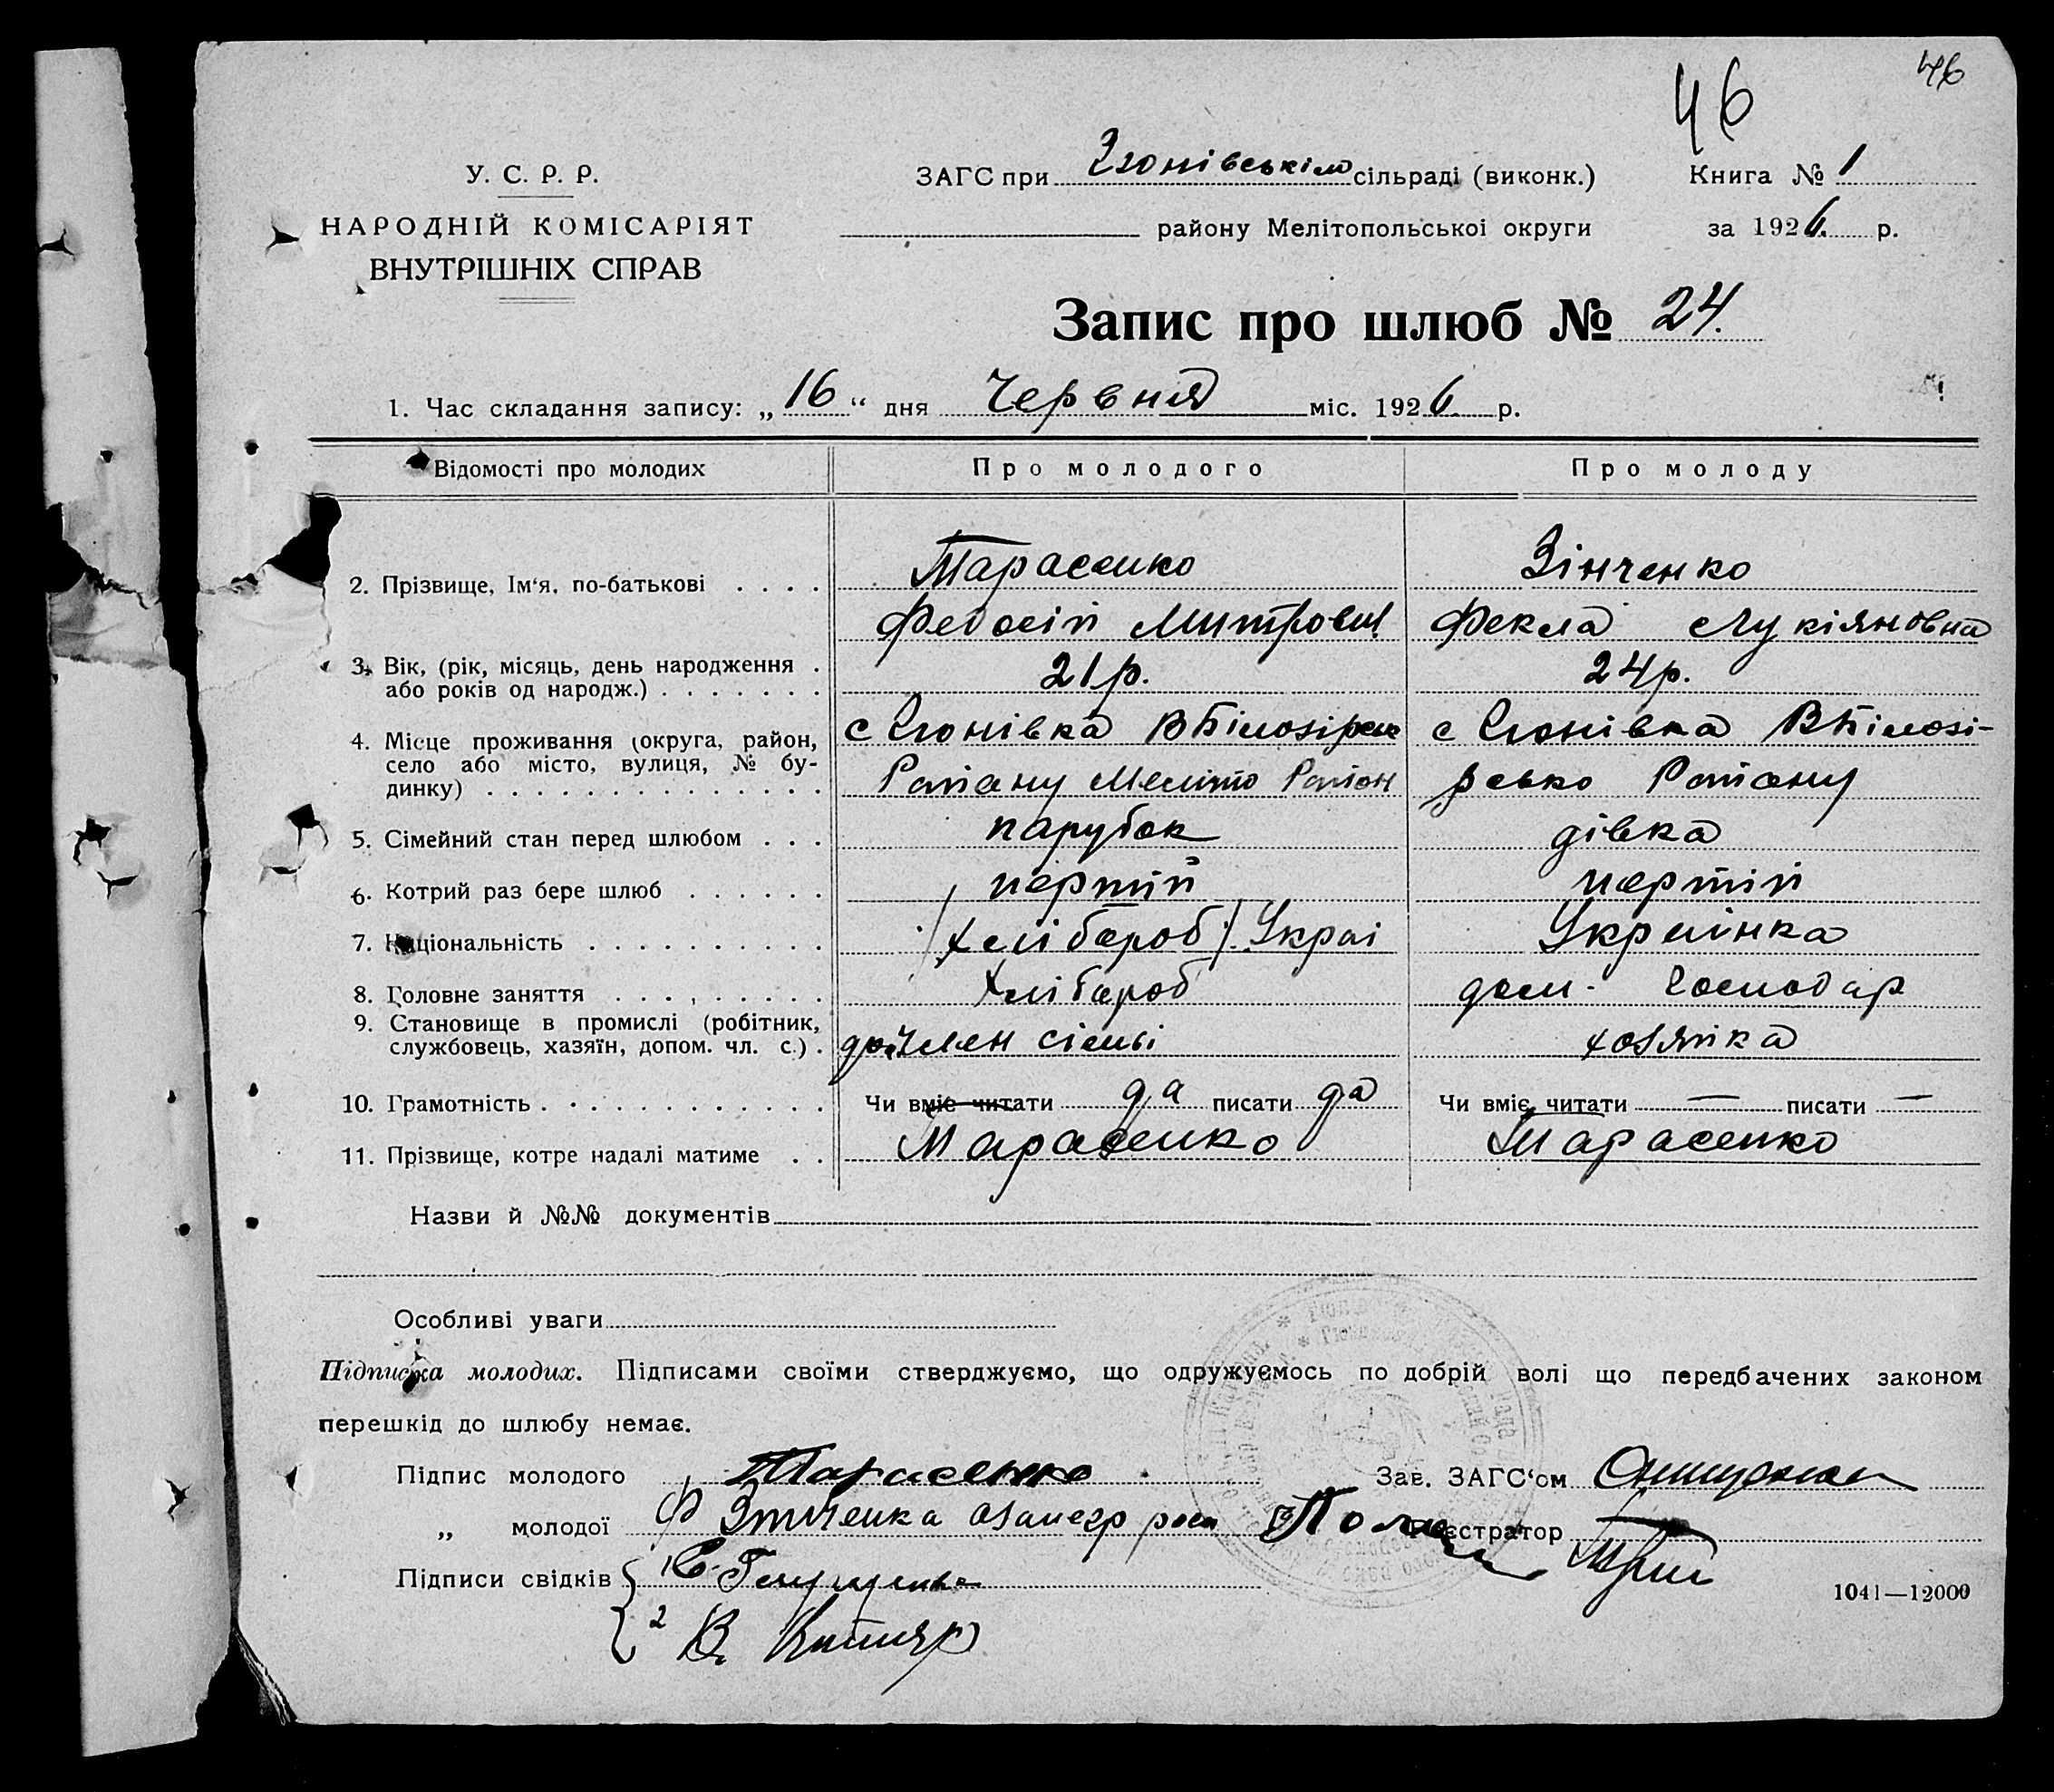 46
46
У. С. Р. Р.
НАРОДНІЙ КОМІСАРІЯТ
ВНУТРІШНІХ СПРАВ
ЗАГС при сільраді (виконк.)
району Мелітопольськоі округи
Книга № 1
за 1926 р.
Запис про шлюб № 24.
1. Час складання запису: „16“ дня Червня міс. 1926 р.
Відомості про молодих
Про молодого
Про молоду
2. Прізвище, Ім‘я, по-батькові . . . .
Тарасенко
Зінченко
Федосій Митрович
Фекла Лукіяновна
3. Вік, (рік, місяць, день народження .
або років од народж.) . . . . . . .
21р.
24р.
4. Місце проживання (округа, район,
село або місто, вулиця, № бу-
динку) . . . . . . . . . . . . . .
с ВБілозірськ
Району Меліто Район
с ВБілозі-
рсько Району
5. Сімейний стан перед шлюбом . . .
парубок
дівка
6. Котрий раз бере шлюб . . . . . .
перший
перший
7. Національність . . . . . . . . . .
/хлібороб/ Украі
Украінка
8. Головне заняття . . . . . . . . .
хлібороб
дом. господар
9. Становище в промислі (робітник,
службовець, хазяїн, допом. чл. с.) .
член сімьі
хозяйка
10. Грамотність . . . . . . . . . . . .
Чи вміє читати да писати да
Чи вміє читати — писати —
11. Прізвище, котре надалі матиме . .
Тарасенко
Тарасенко
Назви й №№ документів
Особливі уваги
Підписка молодих. Підписами своїми стверджуємо, що одружуємось по добрій волі що передбачених законом
перешкід до шлюбу немає.
Підпис молодого Тарасенко
Зав. ЗАГС‘ом
„ молодої Ф Зінченка
Реєстратор
Підписи свідків
2 В.
1041—12000